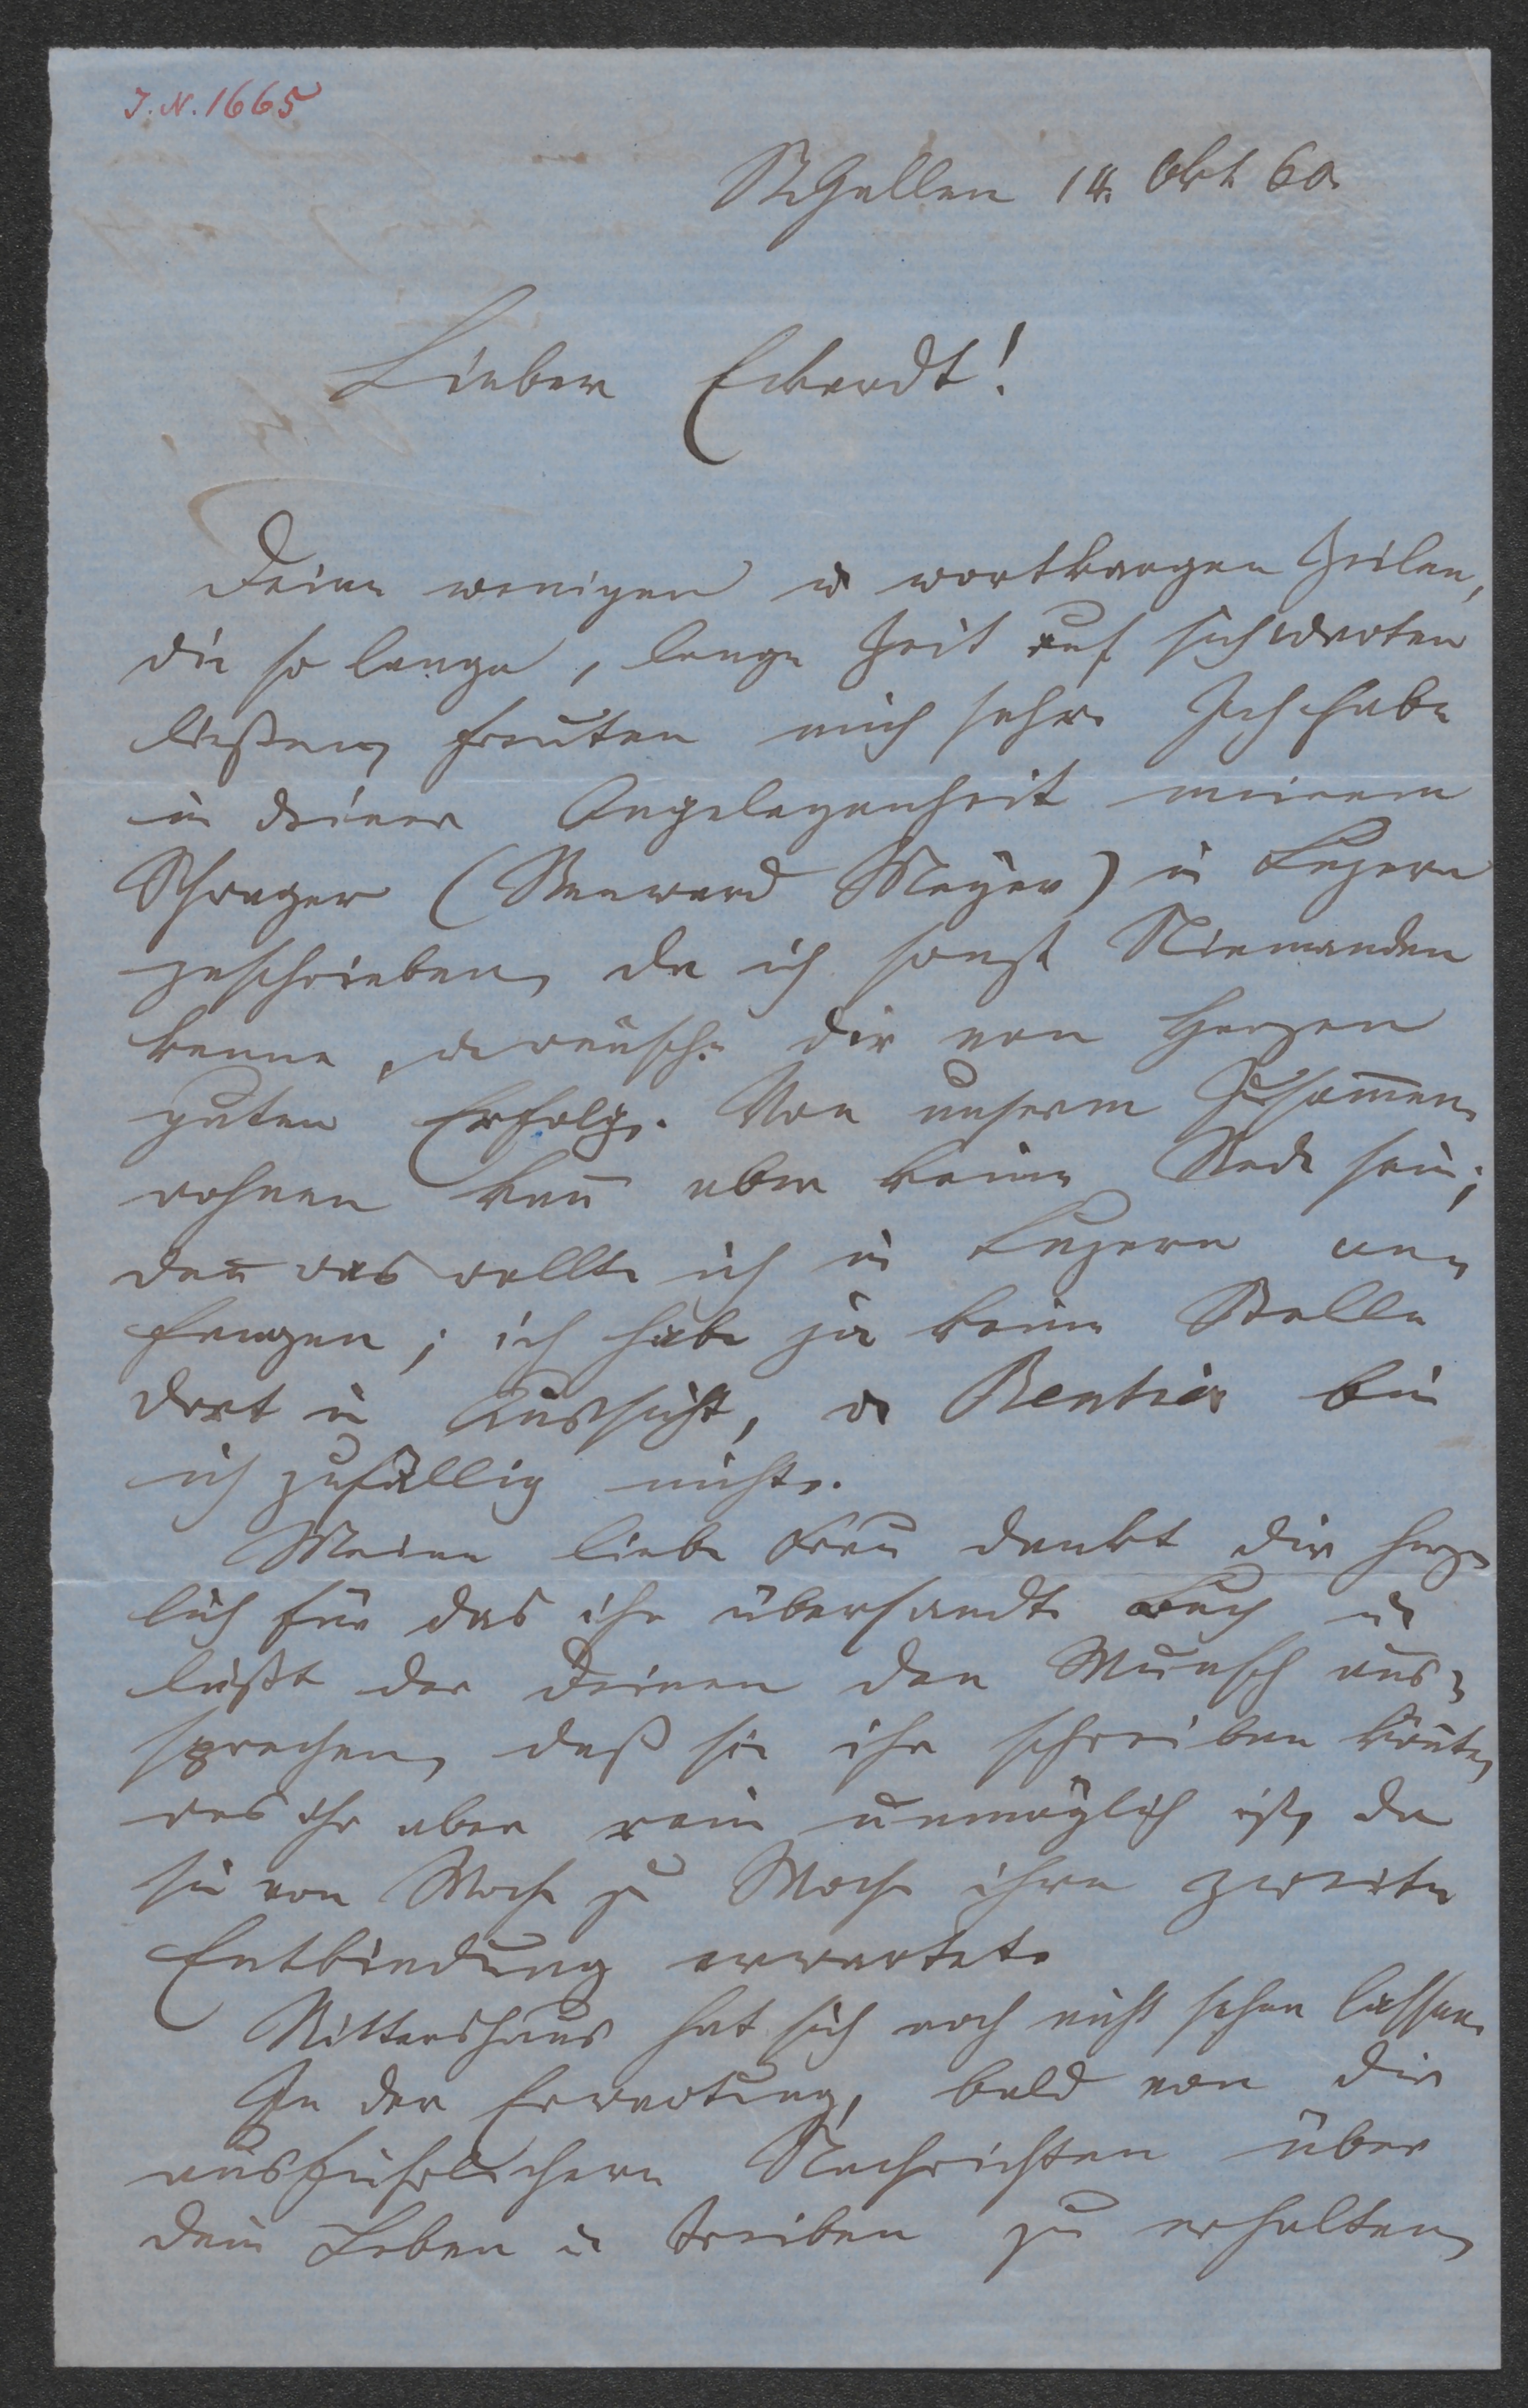 J.N. 1665
St Gallen 14. Okt 60.
Lieber Eckardt!
Deine wenigen u wortkargen Zeilen,
die so lange, lange Zeit auf sich warten
ließen, freuten mich sehr. Ich habe
in deiner Angelegenheit meinem
Schwager (Meyer) in Luzern
geschrieben, da ich sonst Niemanden
kenne, u wünsche dir von Herzen
guten Erfolg. Von unserm Zusammen-
wohnen kañ aber keine Rede sein;
deñ was wollte ich in Luzern an-
fangen; ich habe ja keine Stelle
dort in Aussicht, u Rentier bin
ich zufällig nicht.
Meine liebe Frau dankt dir herz-
lich für das ihr übersandte Buch u
läßt der Deinen den Wunsch aus-
sprechen, daß sie ihr schreiben köñte,
was ihr aber rein unmöglich ist, da
sie von Woche zu Woche ihre zweite
Entbindung erwartet.
Rittershaus hat sich noch nicht sehen lassen.
In der Erwartung, bald von dir
ausführlichere Nachrichten über
dein Leben u Treiben zu erhalten,